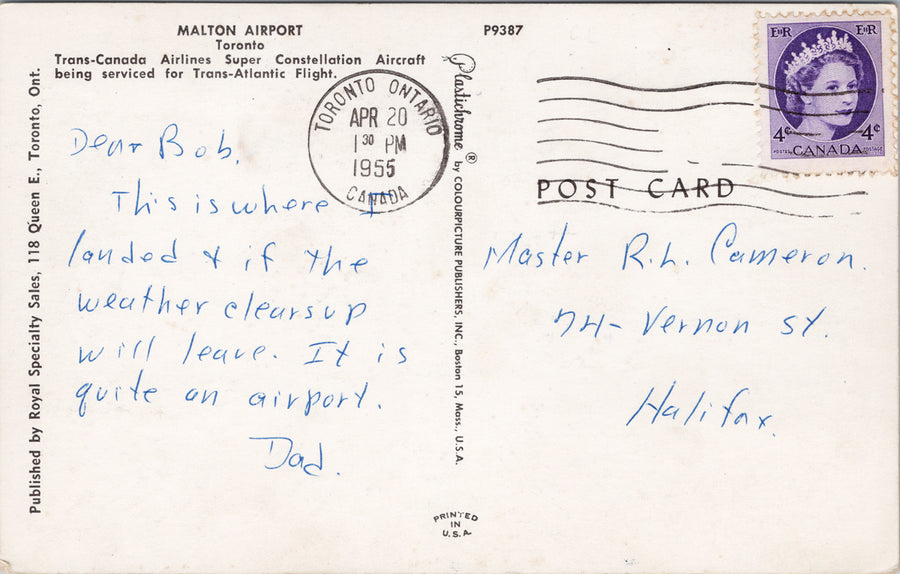 MALTON AIRPORT
Toronto
Trans-Canada Airlines Super Constellation Aircraft
being serviced for Trans-Atlantic Flight.
P9387
Published by Royal Specialty Sales, 118 Queen E., Toronto, Ont.
Plastichrome ® by COLOURPICTURE PUBLISHERS, INC., Boston 15, Mass., U.S.A.
TORONTO ONTARIO
APR 20
1 30 PM
1955
CANADA
EIIR EIIR
4¢ 4¢
POSTES CANADA POSTAGE
POST CARD
Dear Bob,
This is where I
landed & if the
weather clears up
will leave. It is
quite an airport.
Dad.
Master R.L. Cameron.
74- Vernon St.
Halifax.
PRINTED
IN
U.S.A.